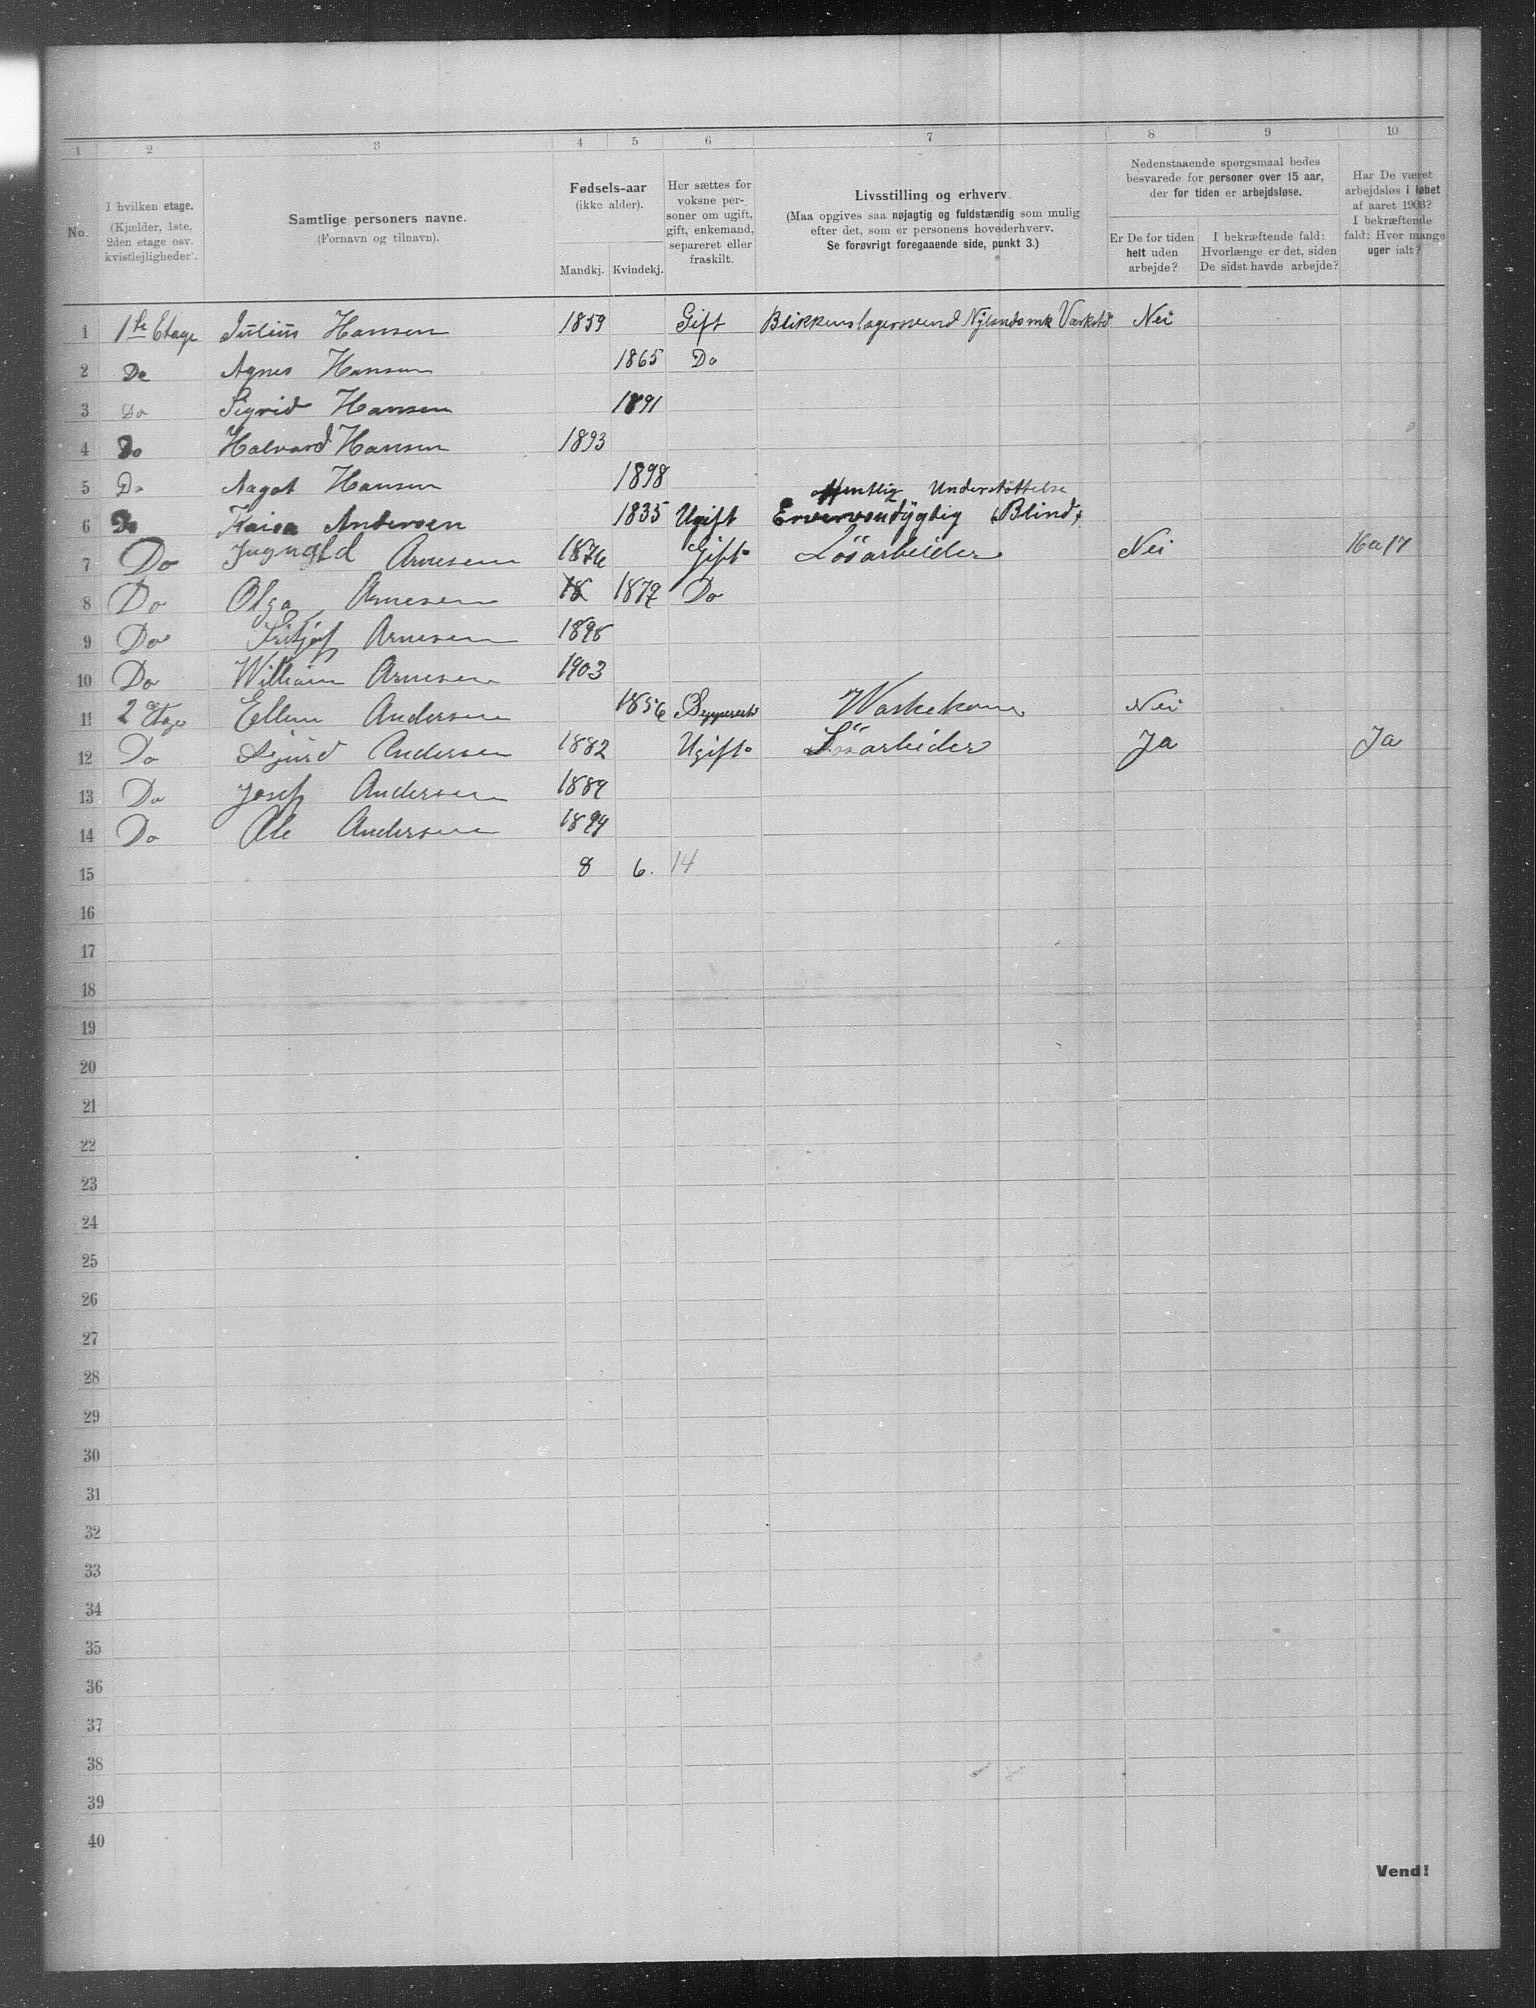 1 2 3 4 5 6 7 8 9 10
No.
I hvilken etage.
(Kjælder, 1ste,
2den etage osv.
kvistlejligheder).
Samtlige personers navne.
(Fornavn og tilnavn).
Fødsels-aar
(ikke alder).
Mandkj. Kvindekj.
Her sættes for
voksne per-
soner om ugift,
gift, enkemand,
separeret eller
fraskilt.
Livsstilling og erhverv.
(Maa opgives saa nøjagtig og fuldstændig som mulig
efter det, som er personens hovederhverv.
Se forøvrigt foregaaende side, punkt 3.)
Nedenstaaende spørgsmaal bedes
besvarede for personer over 15 aar,
der for tiden er arbejdsløse.
Er De for tiden
helt uden
arbejde?
I bekræftende fald:
Hvorlænge er det, siden
De sidst havde arbejde?
Har De været
arbejdsløs i løbet
af aaret 1903?
I bekræftende
fald: Hvor mange
uger ialt?
1 1ste Etage Julius Hansen 1859 Gift Blikkenslagersvend Nylands mk Værksted Nei
2 Do Agnes Hansen 1865 Do
3 Do Sigrid Hansen 1891
4 Do Halvard Hansen 1893
5 Do Aagot Hansen 1898
offentlig Understøttelse
6 Do Andersen 1835 Ugift (Blind)
7 Do Arnesen 1876 Gift Løsarbeider Nei 16 a 17
8 Do Olga Arnesen 18 Do
9 Do Fritjof Arnesen
10 Do William Arnesen 1903
11 2 Etage Ellen Andersen 1856 Vaskekone Nei
12 Do Andersen 1882 Ugift Løsarbeider Ja Ja
13 Do Josef Andersen 1889
14 Do Ole Andersen
15 8 6. 14
16
17
18
19
20
21
22
23
24
25
26
27
28
29
30
31
32
33
34
35
36
37
38
39
40
Vend!